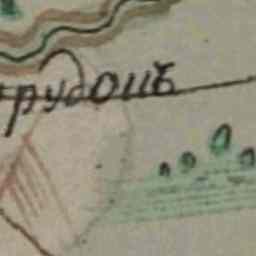 рудоцъ